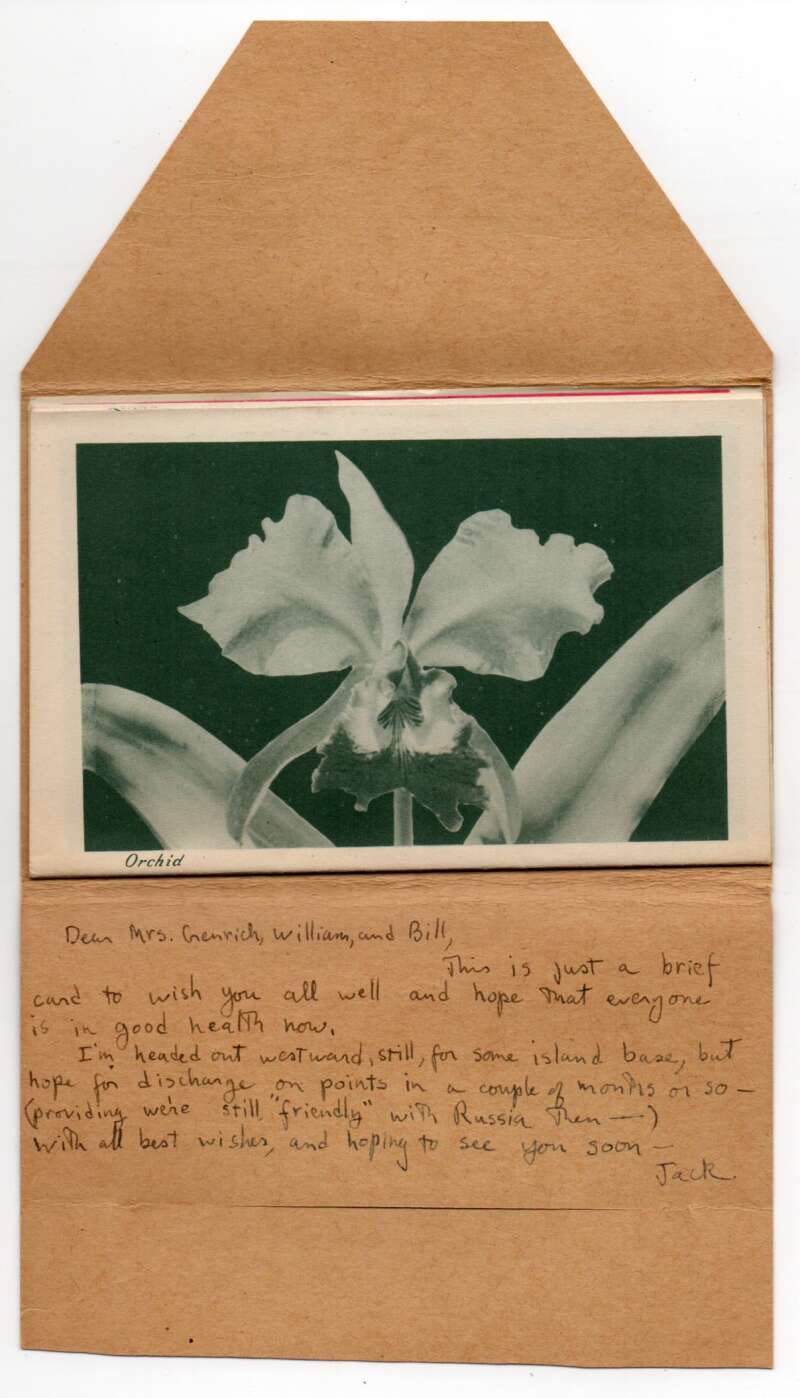 Orchid
Dear Mrs. Genrich, William, and Bill,
This is just a brief
card to wish you all well and hope that everyone
is in good health now.
I'm headed out westward, still, for some island base, but
hope for discharge on points in a couple of months or so —
(providing we're still "friendly" with Russia then —)
With all best wishes, and hoping to see you soon —
Jack.